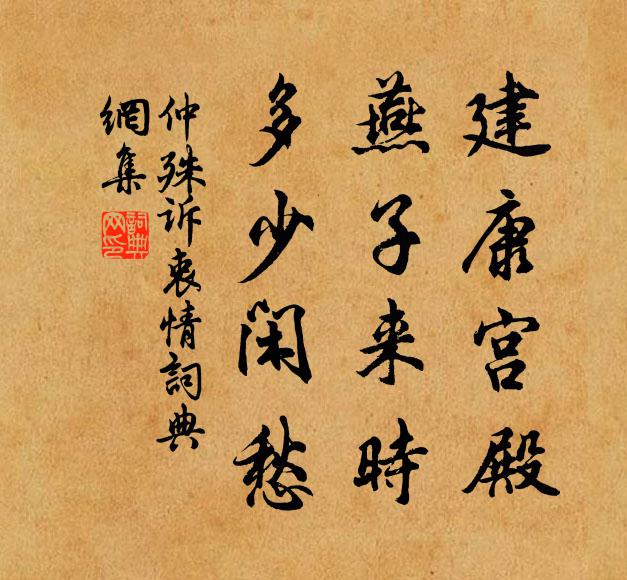 建康宫殿
燕子来時
多少闲愁
仲殊诉衷情詞典
網集
詞典
网印